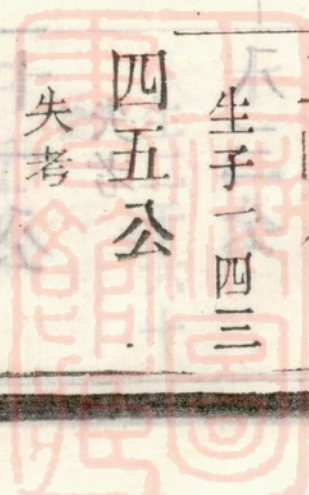 生子一四三
四五公
失考